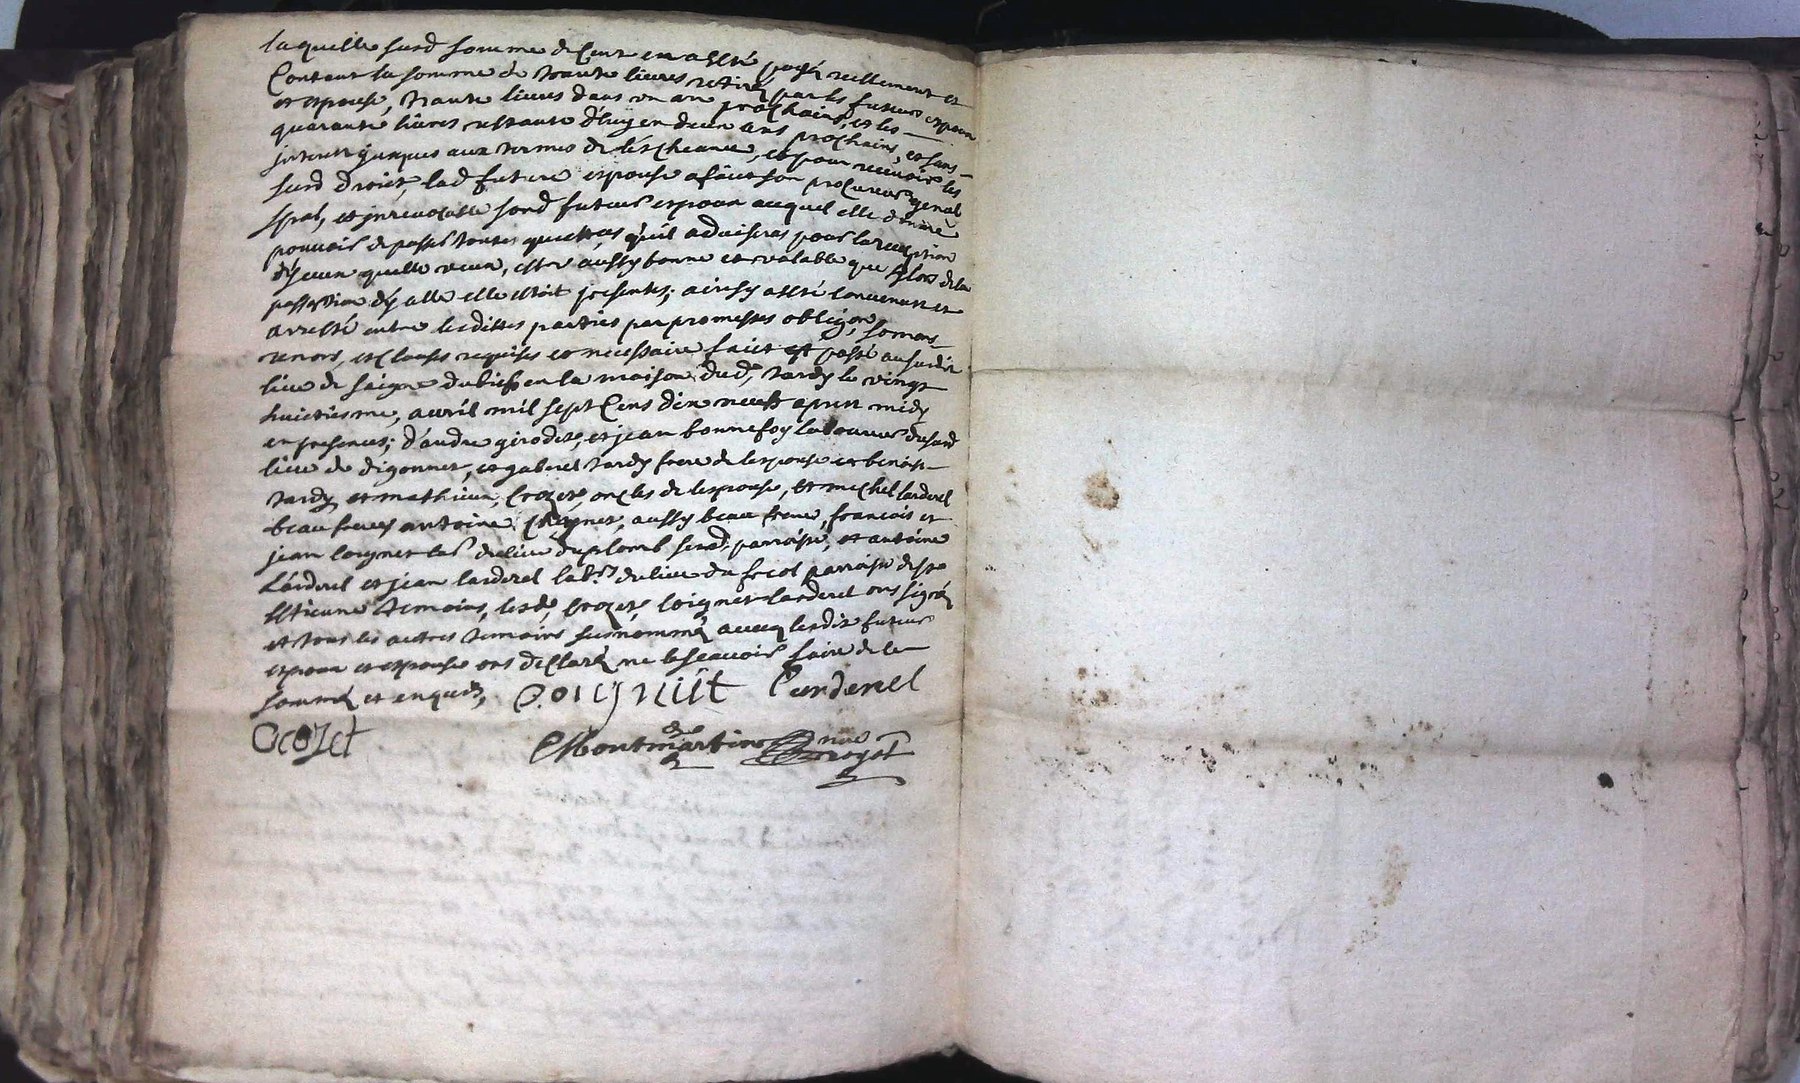 laquelle susd somme de cent en a esté payé reellement et
Contant la somme de trante livres retiré par les futeurs espoux
et espouse, trante livres dans un an prochains, et les
quarante livres restante d'huy en deux ans prochains, et sans
jnterest jusques aux termes de l'escheance, et pour recevoir les
susd droict, lad future espouse a faict son procureur genal
spal, et jnrevocable sond futeur espoux auquel elle donne
pouvoir de passer toutes quittances qu'il advisera pour la reception
d'jceux quelle veux, estre aussy bonne et valable que sy lors de la
passation d'jcelle elle estoit presente; ainsy a esté convenu et
arresté entre lesdittes parties par promesses obligon somons
renons, et clauses requises et necessaire faict et passé au susdit
lieu de saigne du bieß en la maison dud, tardy le vingt
huictiesme, avril mil sept cens dix neufs apres midy
en presences; d'andre girodet, et jean bonnefoy laboureur du sard
lieu de digonnet, et gaberel tardy frere de lespouse et benoist
tardy et mathieu, crozet, oncles de lespouse, et michel larderel
beau freres antoine chaynet, aussy beau frere, francois et
jean soignet labr du lieu du plomb susd parroisse, et antoine
Larderel et jean larderel labr du lieu du fecol parroisse de st
Estienne temoins, lesd, crozet, soignet larderel ont signé
et tous les autres temoins susnommé avecq lesdit futeur
espoux et espouse ont declaré ne le scavoir faire de ce
sommé et enquis,
Soignet Larderel
Crozet Montmartin nre royal